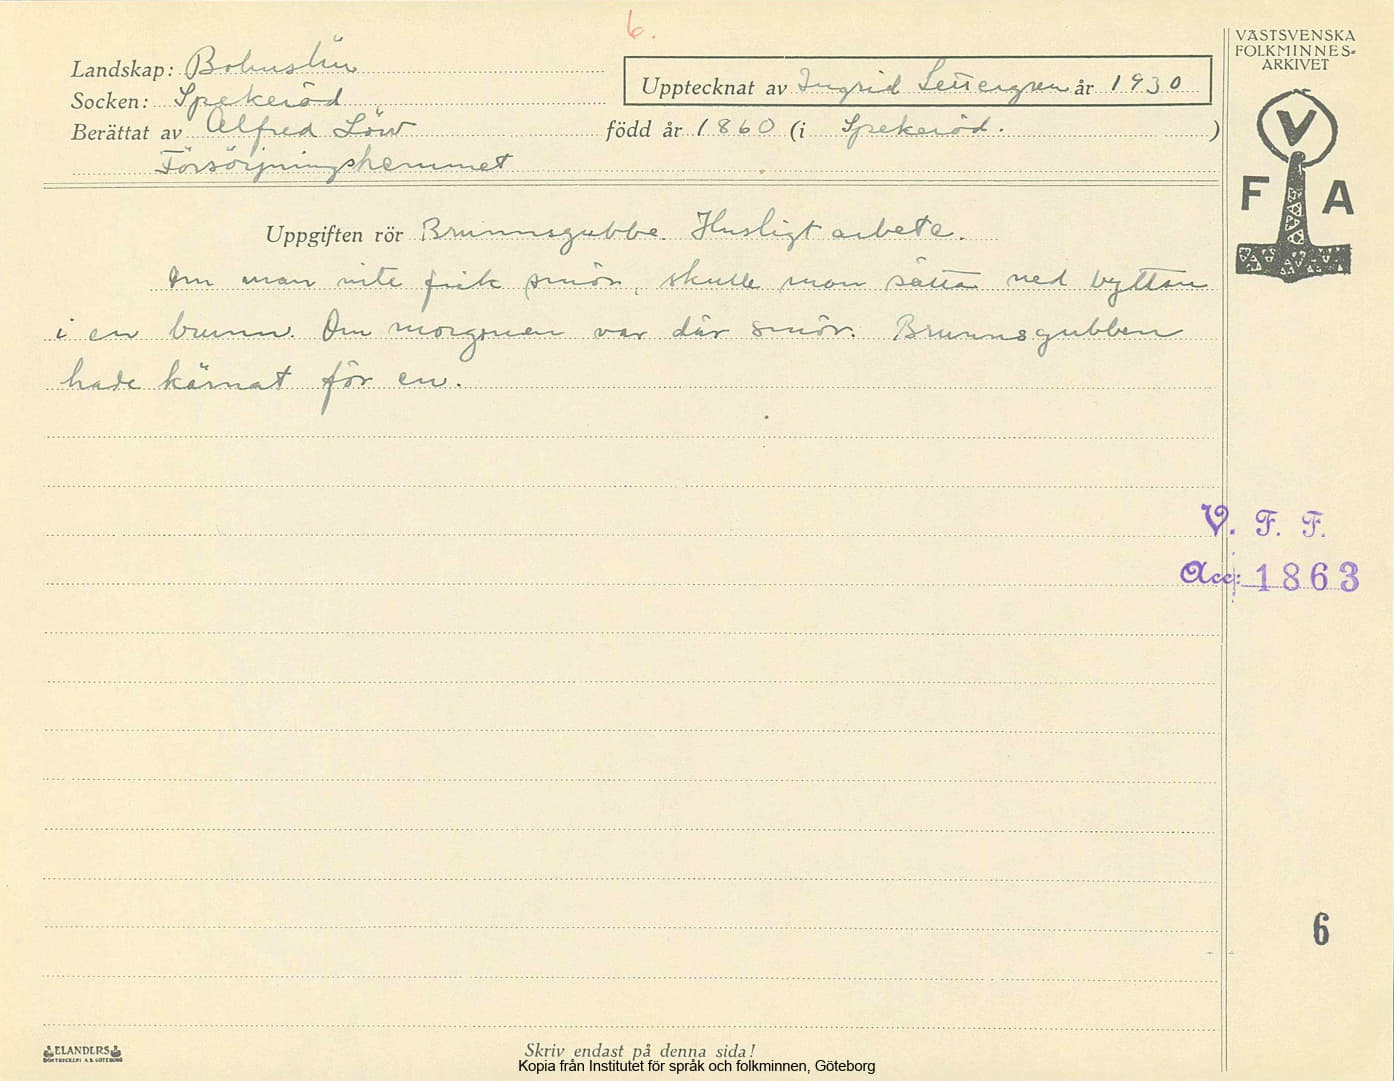 6.
VÄSTSVENSKA
FOLKMINNES-
ARKIVET
Landskap: Bohuslän
Upptecknat av Ingrid Settergren år 1930
Socken: Spekeröd
Berättat av Alfred Löw född år 1860 (i Spekeröd. )
Försörjningshemmet
V
F A
Uppgiften rör Brunnsgubbe. Husligt arbete.
Om man inte fick smör, skulle man sätta ned byttan
i en brunn. Om morgonen var där smör. Brunnsgubben
hade kärnat för en.
V. F. F.
Acc: 1863
6
ELANDERS
BOKTRYCKERI A.B. GÖTEBORG
Skriv endast på denna sida!
Kopia från Institutet för språk och folkminnen, Göteborg